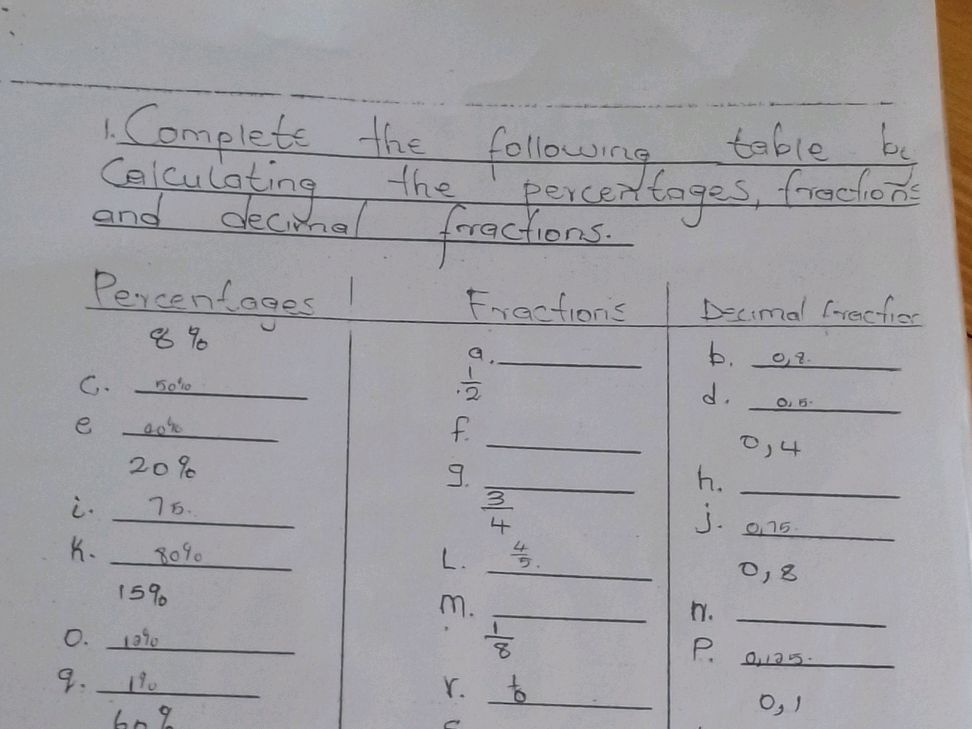 1. Complete the following table by
Calculating the percentages, fractions
and decimal fractions.
Percentages Fractions Decimal fraction
8% a. b. 0,8.
c. 50% 1/2 d. 0,5.
e f. 0,4
20% g. h.
i. 75. 3/4 j. 0,75.
K. 80% L. 4/5. 0,8
15% m. n.
o. 1/8 P. 0,125.
q. 1% r. 0,1
60%